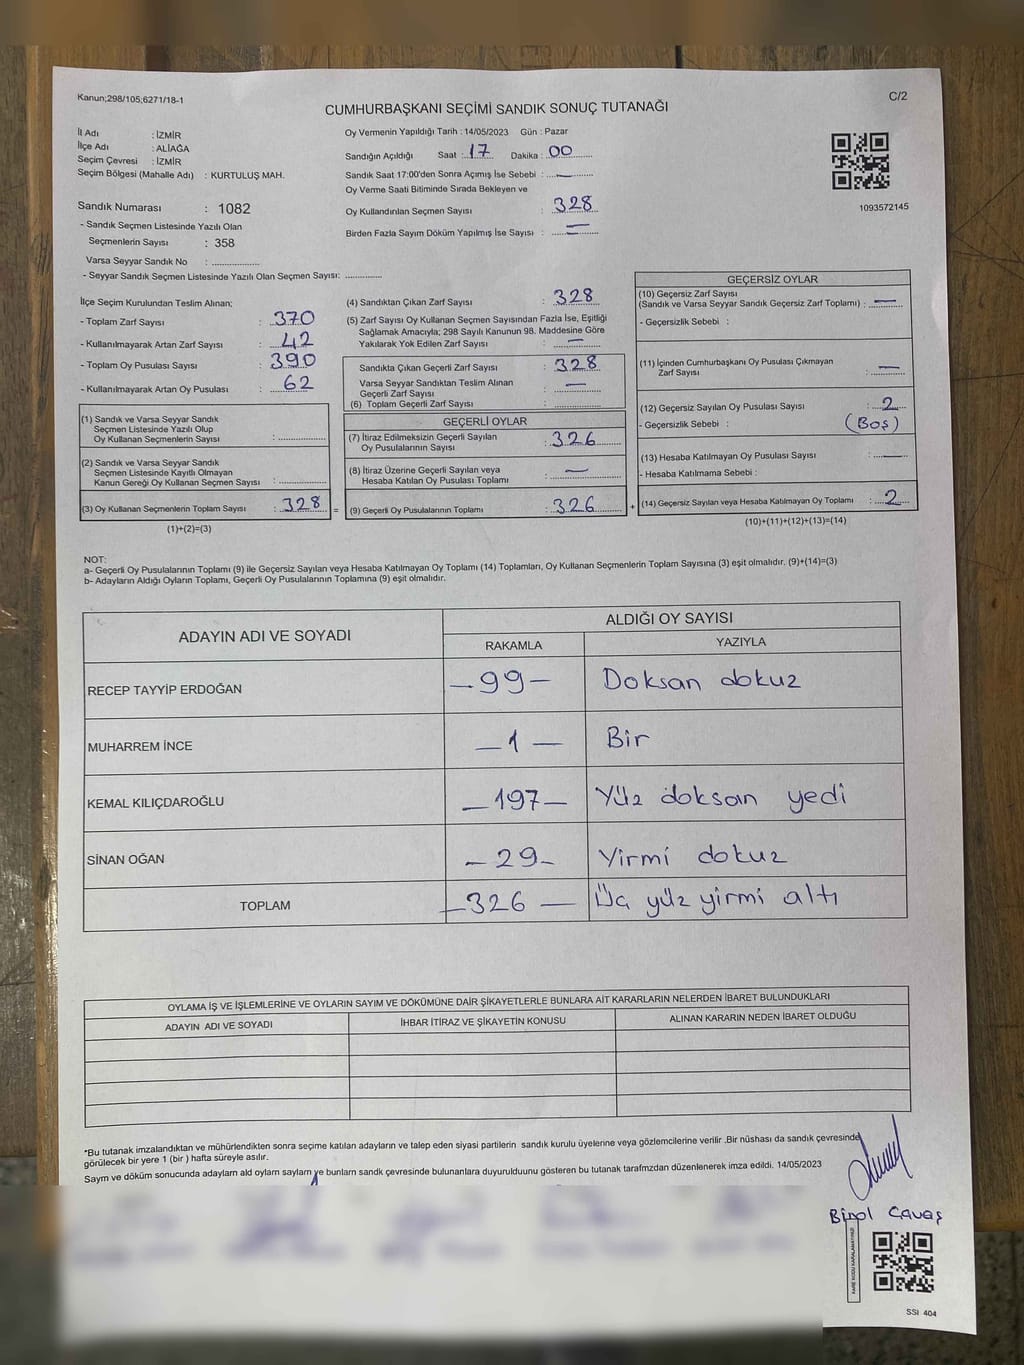 Kanun;298/105;6271/18-1
C/2
CUMHURBAŞKANI SEÇİMİ SANDIK SONUÇ TUTANAĞI
İl Adı : İZMİR
İlçe Adı : ALİAĞA
Seçim Çevresi : İZMİR
Seçim Bölgesi (Mahalle Adı) : KURTULUŞ MAH.
Sandık Numarası : 1082
- Sandık Seçmen Listesinde Yazılı Olan
Seçmenlerin Sayısı : 358
Varsa Seyyar Sandık No : ..............
- Seyyar Sandık Seçmen Listesinde Yazılı Olan Seçmen Sayısı: ............
Oy Vermenin Yapıldığı Tarih : 14/05/2023 Gün : Pazar
Sandığın Açıldığı Saat : 17 Dakika : 00
Sandık Saat 17:00'den Sonra Açımış İse Sebebi : —
Oy Verme Saati Bitiminde Sırada Bekleyen ve
Oy Kullandırılan Seçmen Sayısı : 328
Birden Fazla Sayım Döküm Yapılmış İse Sayısı : —
1093572145
İlçe Seçim Kurulundan Teslim Alınan;
- Toplam Zarf Sayısı : 370
- Kullanılmayarak Artan Zarf Sayısı : 42
- Toplam Oy Pusulası Sayısı : 390
- Kullanılmayarak Artan Oy Pusulası : 62
(1) Sandık ve Varsa Seyyar Sandık
Seçmen Listesinde Yazılı Olup
Oy Kullanan Seçmenlerin Sayısı : ..............
(2) Sandık ve Varsa Seyyar Sandık
Seçmen Listesinde Kayıtlı Olmayan
Kanun Gereği Oy Kullanan Seçmen Sayısı : ..............
(3) Oy Kullanan Seçmenlerin Toplam Sayısı : 328 =
(1)+(2)=(3)
(4) Sandıktan Çıkan Zarf Sayısı : 328
(5) Zarf Sayısı Oy Kullanan Seçmen Sayısından Fazla İse, Eşitliği
Sağlamak Amacıyla; 298 Sayılı Kanunun 98. Maddesine Göre
Yakılarak Yok Edilen Zarf Sayısı : —
Sandıkta Çıkan Geçerli Zarf Sayısı : 328
Varsa Seyyar Sandıktan Teslim Alınan
Geçerli Zarf Sayısı : —
(6) Toplam Geçerli Zarf Sayısı : ..............
GEÇERLİ OYLAR
(7) İtiraz Edilmeksizin Geçerli Sayılan
Oy Pusulalarının Sayısı : 326
(8) İtiraz Üzerine Geçerli Sayılan veya
Hesaba Katılan Oy Pusulası Toplamı : —
(9) Geçerli Oy Pusulalarının Toplamı : 326 +
GEÇERSİZ OYLAR
(10) Geçersiz Zarf Sayısı
(Sandık ve Varsa Seyyar Sandık Geçersiz Zarf Toplamı) : —
- Geçersizlik Sebebi :
(11) İçinden Cumhurbaşkanı Oy Pusulası Çıkmayan
Zarf Sayısı : —
(12) Geçersiz Sayılan Oy Pusulası Sayısı : 2
- Geçersizlik Sebebi : (Boş)
(13) Hesaba Katılmayan Oy Pusulası Sayısı : —
- Hesaba Katılmama Sebebi :
(14) Geçersiz Sayılan veya Hesaba Katılmayan Oy Toplamı : 2
(10)+(11)+(12)+(13)=(14)
NOT:
a- Geçerli Oy Pusulalarının Toplamı (9) ile Geçersiz Sayılan veya Hesaba Katılmayan Oy Toplamı (14) Toplamları, Oy Kullanan Seçmenlerin Toplam Sayısına (3) eşit olmalıdır. (9)+(14)=(3)
b- Adayların Aldığı Oyların Toplamı, Geçerli Oy Pusulalarının Toplamına (9) eşit olmalıdır.
ADAYIN ADI VE SOYADI ALDIĞI OY SAYISI
RAKAMLA YAZIYLA
RECEP TAYYİP ERDOĞAN —99— Doksan dokuz
MUHARREM İNCE —1— Bir
KEMAL KILIÇDAROĞLU —197— Yüz doksan yedi
SİNAN OĞAN —29— Yirmi dokuz
TOPLAM —326— Üç yüz yirmi altı
OYLAMA İŞ VE İŞLEMLERİNE VE OYLARIN SAYIM VE DÖKÜMÜNE DAİR ŞİKAYETLERLE BUNLARA AİT KARARLARIN NELERDEN İBARET BULUNDUKLARI
ADAYIN ADI VE SOYADI İHBAR İTİRAZ VE ŞİKAYETİN KONUSU ALINAN KARARIN NEDEN İBARET OLDUĞU
*Bu tutanak imzalandıktan ve mühürlendikten sonra seçime katılan adayların ve talep eden siyasi partilerin sandık kurulu üyelerine veya gözlemcilerine verilir .Bir nüshası da sandık çevresinde
görülecek bir yere 1 (bir ) hafta süreyle asılır.
Saym ve döküm sonucunda adaylarn ald oylarn saylarn ve bunlarn sandk çevresinde bulunanlara duyurulduunu gösteren bu tutanak tarafmzdan düzenlenerek imza edildi. 14/05/2023
Birol Çavaş
SSI 404